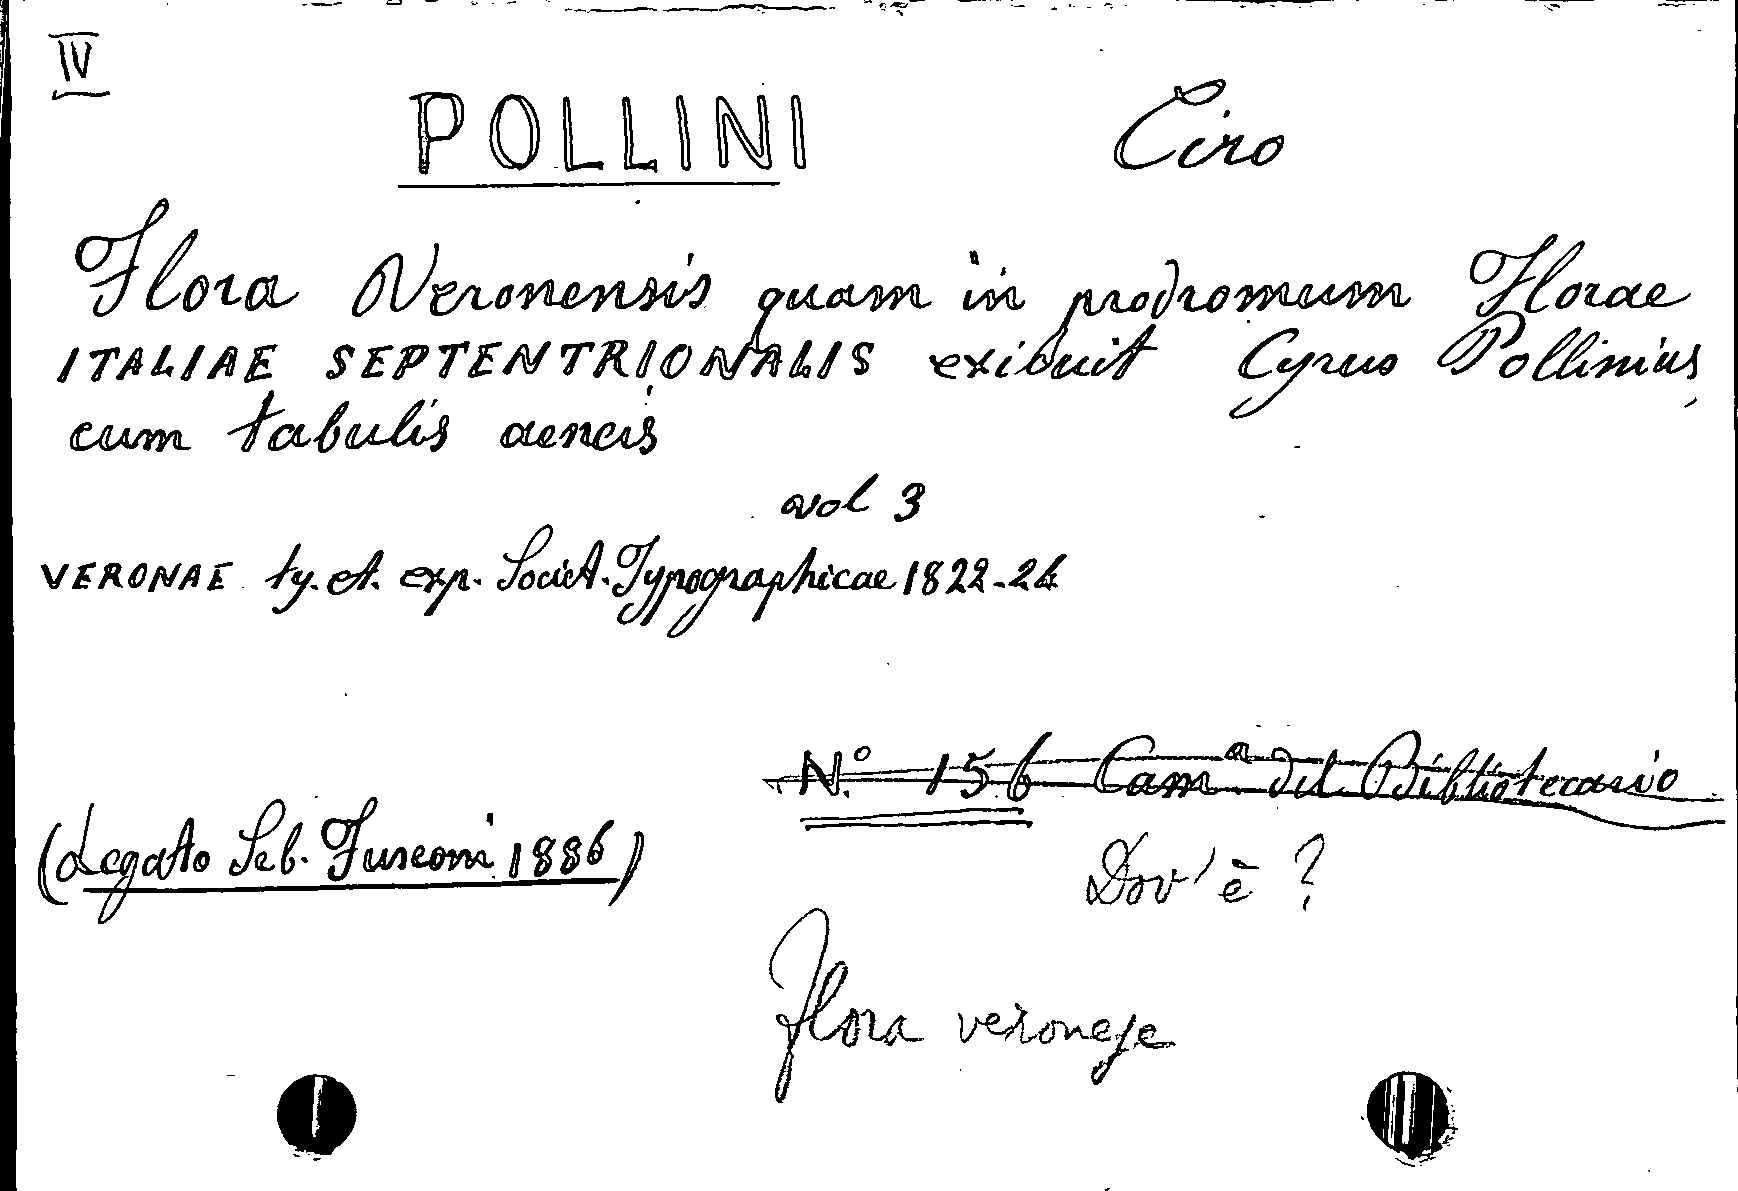 IV
POLLINI Ciro
Flora Veronensis quam in prodromum Florae
ITALIAE SEPTENTRIONALIS exibuit Cyrus Pollinius,
cum tabulis aeneis
vol 3
VERONAE ty. et. exp. Societ. Typographicae 1822-24
N.° 156 Camª del Bibliotecario
(Legato Seb. Fusconi 1886)
Dov'è ?
Flora veronese